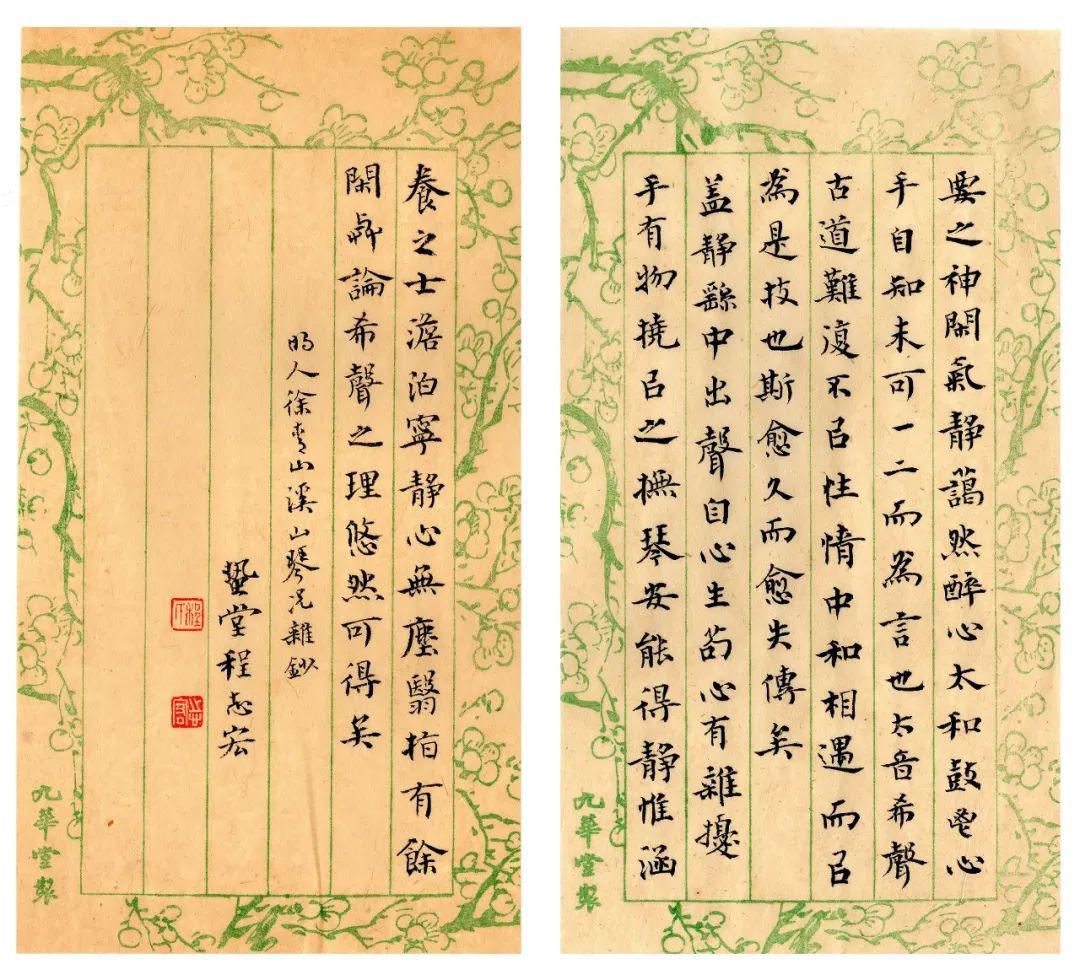 要之神閑氣靜藹然醉心太和鼓鬯心
手自知未可一二而為言也太音希聲
古道難復不㠯性情中和相遇而㠯
為是技也斯愈久而愈失傳矣
盖靜繇中出聲自心生苟心有雜擾
手有物撓㠯之撫琴安能得靜惟涵
九華堂製
養之士澹泊寧靜心無塵翳指有餘
閑與論希聲之理悠然可得矣
明人徐青山溪山琴况雜鈔
蟄堂程志宏
九華堂製